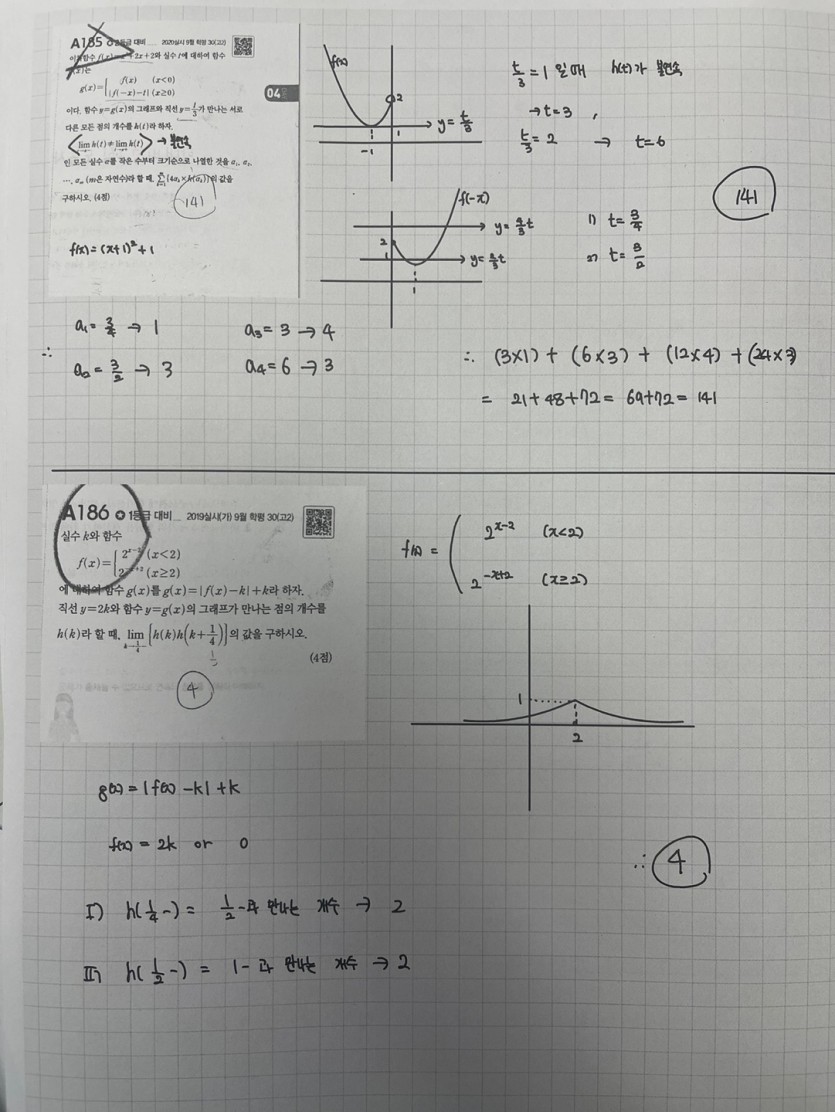 A185 1등급 대비 2020실시 9월 학평 30(고2)
이차함수 f(x)=x²+2x+2와 실수 t에 대하여 함수
g(x)는
g(x)={ f(x) (x<0)
|f(-x)-t| (x≥0)
04
이다. 함수 y=g(x)의 그래프와 직선 y=t/3가 만나는 서로
다른 모든 점의 개수를 h(t)라 하자.
lim h(t)≠lim h(t) → 불연속
인 모든 실수 a를 작은 수부터 크기순으로 나열한 것을 a₁, a₂,
…, aₘ (m은 자연수)라 할 때, Σ{4aₖ×h(aₖ)}의 값을
구하시오. (4점)
141
f(x)=(x+1)²+1
f(x)
2
y=t/3
-1
1
t/3=1 일 때 h(t)가 불연속
→t=3,
t/3=2 → t=6
141
f(-x)
2
1
y=4/3t
y=4/3t
1
1) t=3/4
2) t=3/2
a₁=3/4 → 1 a₃=3 → 4
∴
a₂=3/2 → 3 a₄=6 → 3
∴ (3×1)+(6×3)+(12×4)+(24×3)
= 21+48+72= 69+72=141
A186 1등급 대비 2019실시(가) 9월 학평 30(고2)
실수 k와 함수
f(x)={ 2^(x-2) (x<2)
2^(-x+2) (x≥2)
에 대하여 함수 g(x)를 g(x)=|f(x)-k|+k라 하자.
직선 y=2k와 함수 y=g(x)의 그래프가 만나는 점의 개수를
h(k)라 할 때, lim(k→1/4-) [h(k)h(k+1/4)]의 값을 구하시오.
(4점)
1/2
4
f(x)= ( 2^(x-2) (x<2)
2^(-x+2) (x≥2)
1
2
g(x)=|f(x)-k|+k
f(x)=2k or 0
∴ 4
I) h(1/4-)= 1/2-과 만나는 개수 → 2
II) h(1/2-)= 1-과 만나는 개수 → 2